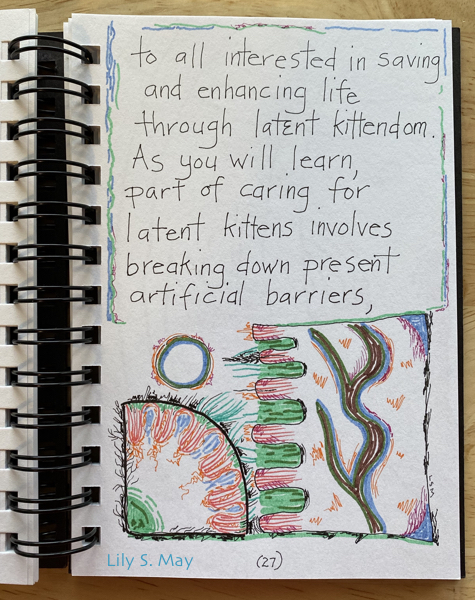 to all interested in saving
and enhancing life
through latent kittendom.
As you will learn,
part of caring for
latent kittens involves
breaking down present
artificial barriers,
Lily S. May
(27)